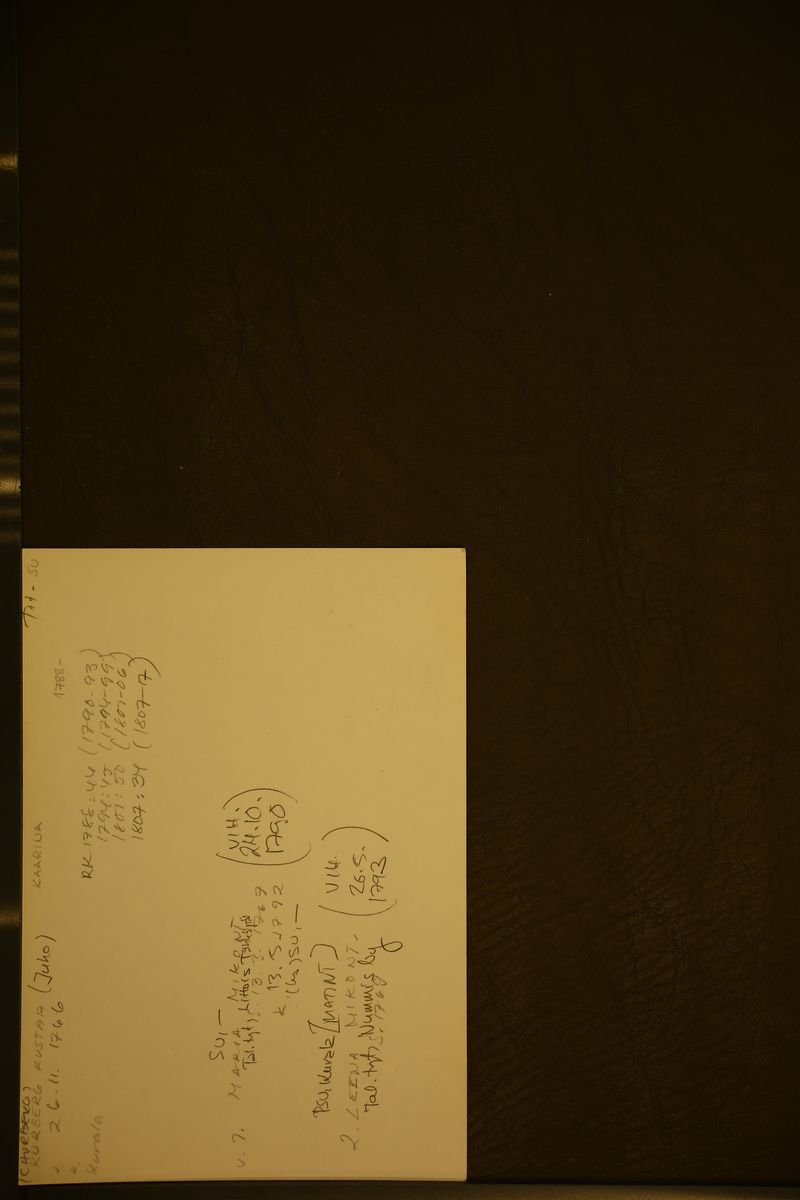 (CHURBERG)
KURBERG KUSTAA (Juho) KAARINA Tht - SU
s. 26.11. 1766 1788-
k.
Kurala
RK 1788:44 (1790-93)
1794:45 (1794-99)
1801:50 (1801-06)
1807:34 (1807-17)
SU,-
v. 1. MARIA MIKONT. (VIH. 24.10. 1790)
Tal. tyt, Littois
s. 13.3. 1767
k 13.5.1792
(ha) SU,-
PSU, Kurala [MATINT]
2. LEENA MIKONT. (VIH 26.5. 1793)
Tal. tyt, Nummis by
s. 1768